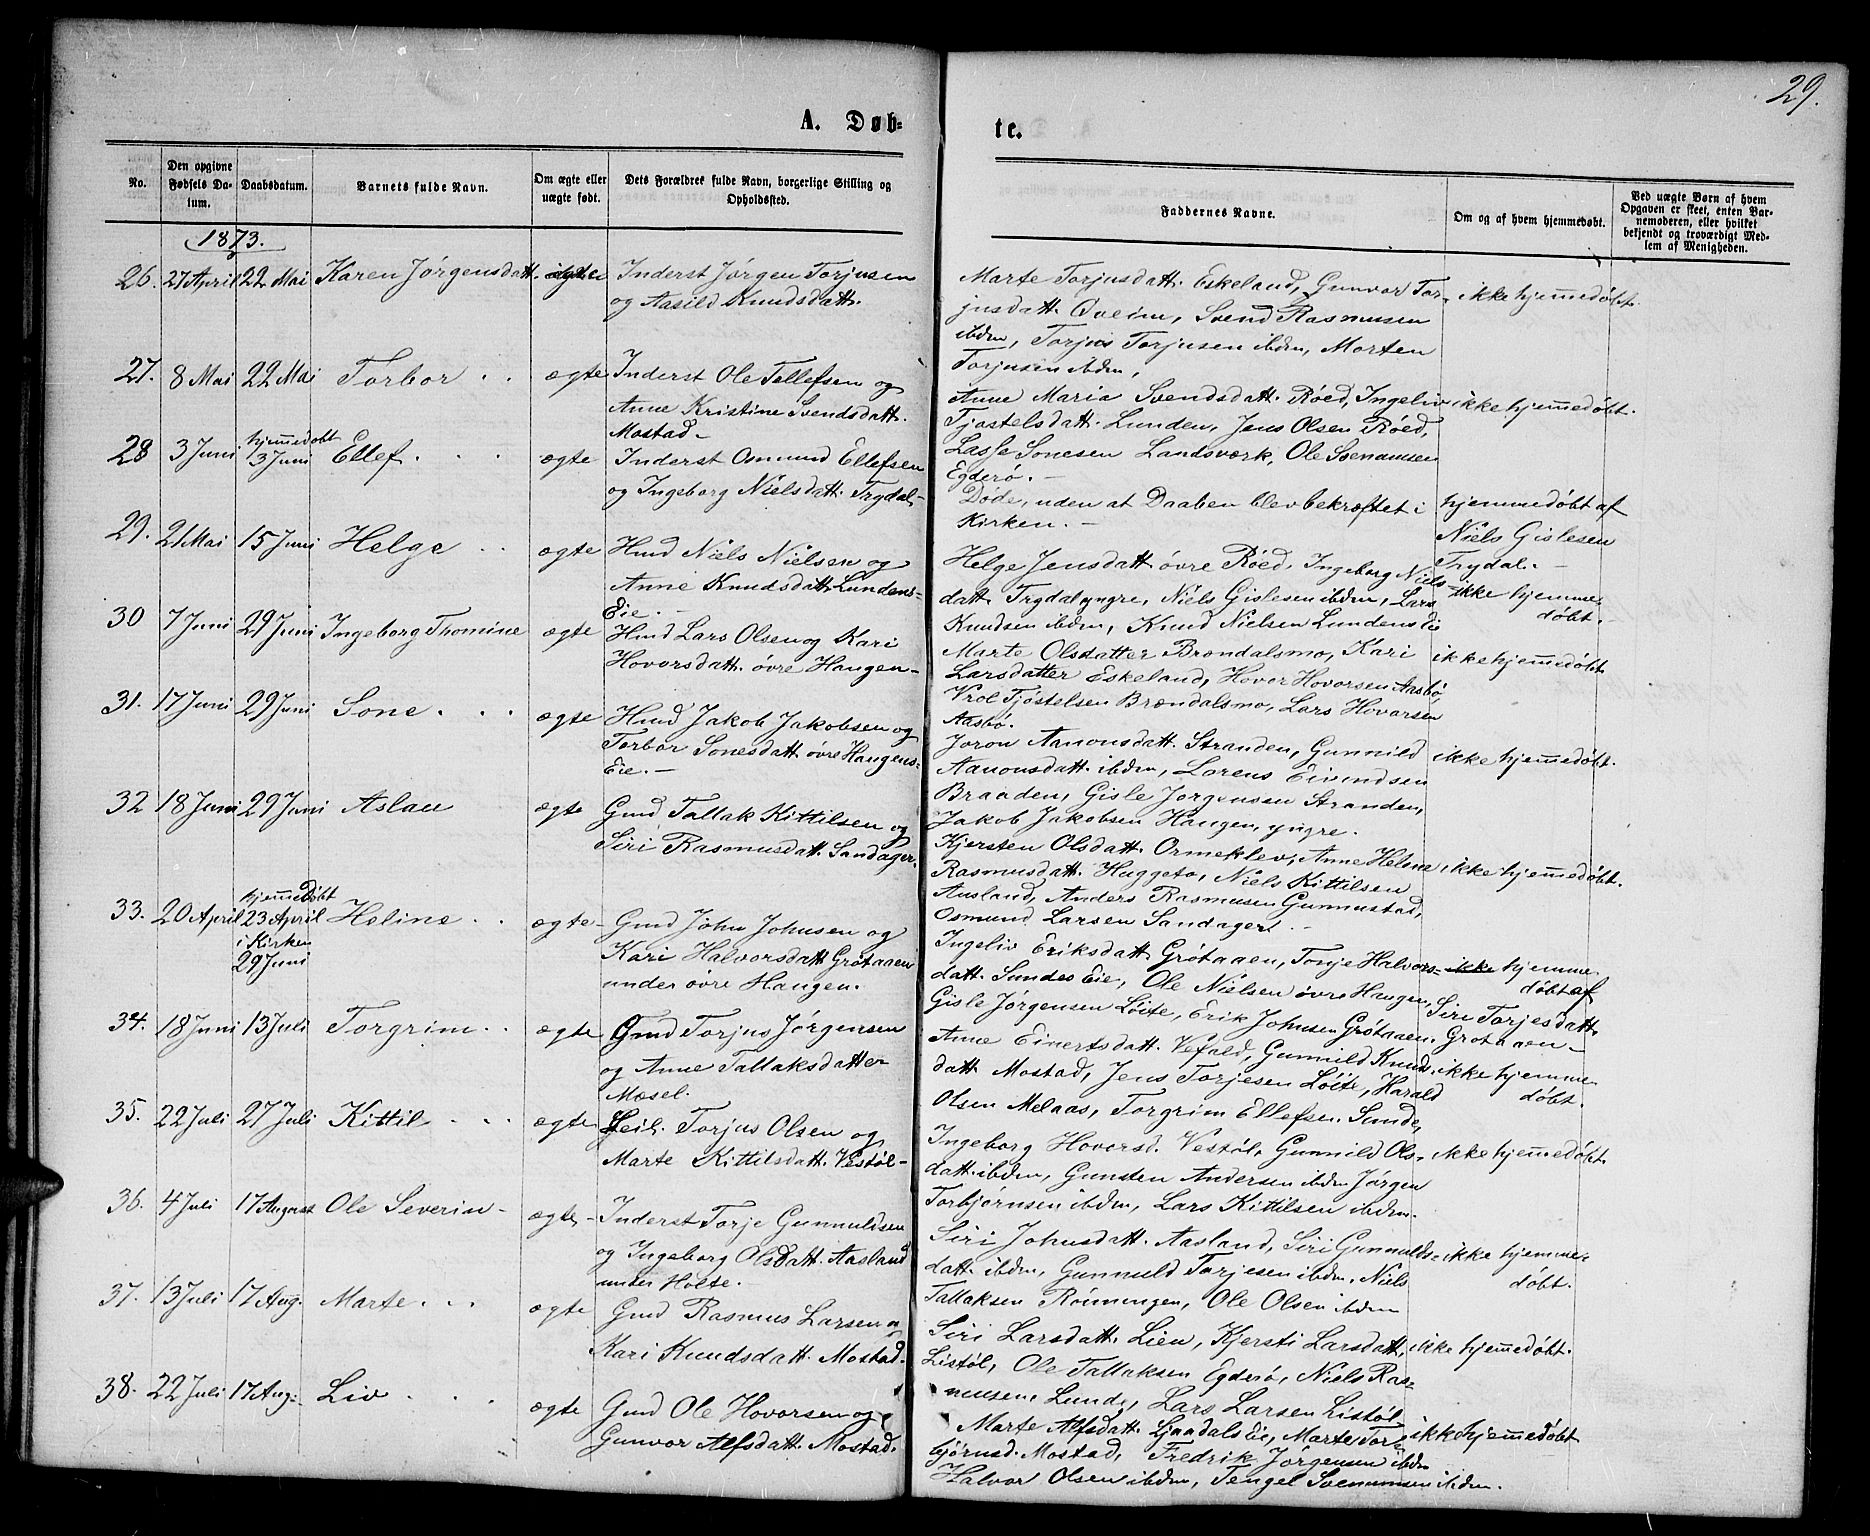 29.
A. Døb-
te.
No.
Den opgivne Fødsels Da-tum.
Daabsdatum.
Barnets fulde Navn.
Om ægte eller uægte født.
Dets Forældres fulde Navn, borgerlige Stilling og Opholdssted.
Faddernes Navne.
Om og af hvem hjemmedøbt.
Ved uægte Børn af hvem Opgaven er skeet, enten Bar-nemoderen, eller hvilket bekjendt og troværdigt Med-lem af Menigheden.
1873.
26. 27 April 22 Mai Karen Jörgensdatt. ægte Inderst Jörgen Torjusen
og Aasild Knudsdatt.
Marte Torjusdatt. Eskeland, Gunvor Tor- ikke hjemmedöbt.
jusdatt. Qveim, Svend Rasmusen
ibdm, Torjus Torjusen ibdm, Morten
Torjusen ibdm,
27. 8 Mai 22 Mai Torbor . . ægte Inderst Ole Tellefsen og
Anne Kristine Svendsdatt.
Mostad-
Anne Maria Svendsdatt. Röed, Ingeliv ikke hjemmedöbt.
Tjostelsdatt. Lunden, Jens Olsen Röed,
Lasse Sonesen Landsværk, Ole Svenumsen
Egderö. -
28 3 Juni hjemmedöbt
3 Juni Ellef. . . . ægte Inderst Osmund Ellefsen
og Ingeborg Nielsdatt. Trydal-
Döde, uden at Daaben blev bekræftet i
Kirken. -
hjemmedöbt af
Niels Gislesen
Trydal. -
29. 21 Mai 15 Juni Helge . . ægte Hmd Niels Nielsen og
Anne Knudsdatt. Lundens-
Eie. -
Helge Jensdatt övre Röed, Ingeborg Niels- ikke hjemme-
datt Trydal yngre, Niels Gislesen ibdm, Lars döbt.
Knudsen ibdm, Knud Nielsen Lundens Eie
30 7 Juni 29 Juni Ingeborg Thomine ægte Hmd Lars Olsen og Kari
Hovorsdatt. övre Haugen-
Marte Olsdatter Brændalsmo, Kari ikke hjemmedöbt
Larsdatter Eskeland, Hovor Hovorsen Aasbö
Vrol Tjöstelsen Brændalsmo, Lars Hovorsen
Aasbö.
31. 17 Juni 29 Juni Sone . . . ægte Hmd Jakob Jakobsen og
Torbor Sonesdatt övre Haugens-
Eie. -
Joron Aanonsdatt. Stranden, Gunnild ikke hjemmedöbt.
Aanonsdatt. ibdm, Lorens Eivindsen
Braaden, Gisle Jörgensen Stranden,
Jakob Jakobsen Haugen, yngre.
32 18 Juni 29 Juni Aslau ægte Gmd Tallak Kittilsen og
Siri Rasmusdatt. Sandager.
Kjersten Olsdatt. Ormeklev, Anne Helene ikke hjemmedöbt.
Rasmusdatt. Huggeto, Niels Kittilsen
Ausland, Anders Rasmusen Gunnustad,
Osmund Larsen Sandager. -
33. 20 April hjemmedöbt
23 April
i Kirken
29 Juni Heline . . ægte- Gmd John Johnsen og
Kari Halvorsdatt Grötaaen
under övre Haugen.
Ingeliv Eriksdatt Grötaaen, Tonje Halvors- ikke hjemme
datt. Sundes Eie, Ole Nielsen övre Haugen, döbt af
Gisle Jörgensen Löite, Erik Johnsen Grötaaen. Siri Torjesdatt.
Grotaaen-
34. 18 Juni 13 Juli Torgrim . . ægte Gmd Torjus Jörgensen
og Anne Tallaksdatter
Mosel.
Anne Einertsdatt. Vefald, Gunnild Knuds- ikke hjemme
datt Mostad, Jens Torjesen Löite, Harald döbt.
Olsen Melaas, Torgrim Ellefsen Sunde,
35. 22 Juli 27 Juli Kittil . . . ægte Leil. Torjus Olsen og
Marte Kittilsdatt. Vestöl-
Ingeborg Hovorsd. Vestöl, Gunnild Ols- ikke hjemmedöbt
datt. ibdm, Gunsten Andersen ibdm Jörgen
Torbjörnsen ibdm, Lars Kittilsen ibdm.
36. 4 Juli 17 August Ole Severin- ægte- Inderst Torje Gunnuldsen
og Ingeborg Olsdatt. Aasland
under Holte.
Siri Johnsdatt. Aasland, Siri Gunnulds- ikke hjemme-
datt ibdm, Gunnuld Torjesen ibdm, Niels döbt.
Tallaksen Röimingen, Ole Olsen ibdm
37. 13 Juli 17 Aug. Marte . . . ægte Gmd Rasmus Larsen og
Kari Knudsdatt. Mostad.
Siri Larsdatt. Lien, Kjersti Larsdatt. ikke hjemmedöbt.
Listöl, Ole Tallaksen Egderö, Niels Ras-
musen Lunde, Lars Larsen Listöl
38. 22 Juli 17 Aug. Liv . . . ægte Gmd Ole Hovorsen og
Gunvor Alfsdatt. Mostad.
Marte Alfsdatt. Ljaadals Eie, Marte Tor- ikke hjemmedöbt
björnsd. Mostad, Fredrik Jörgensen ibdm
Halvor Olsen ibdm, Tengel Svenumsen ibdm.